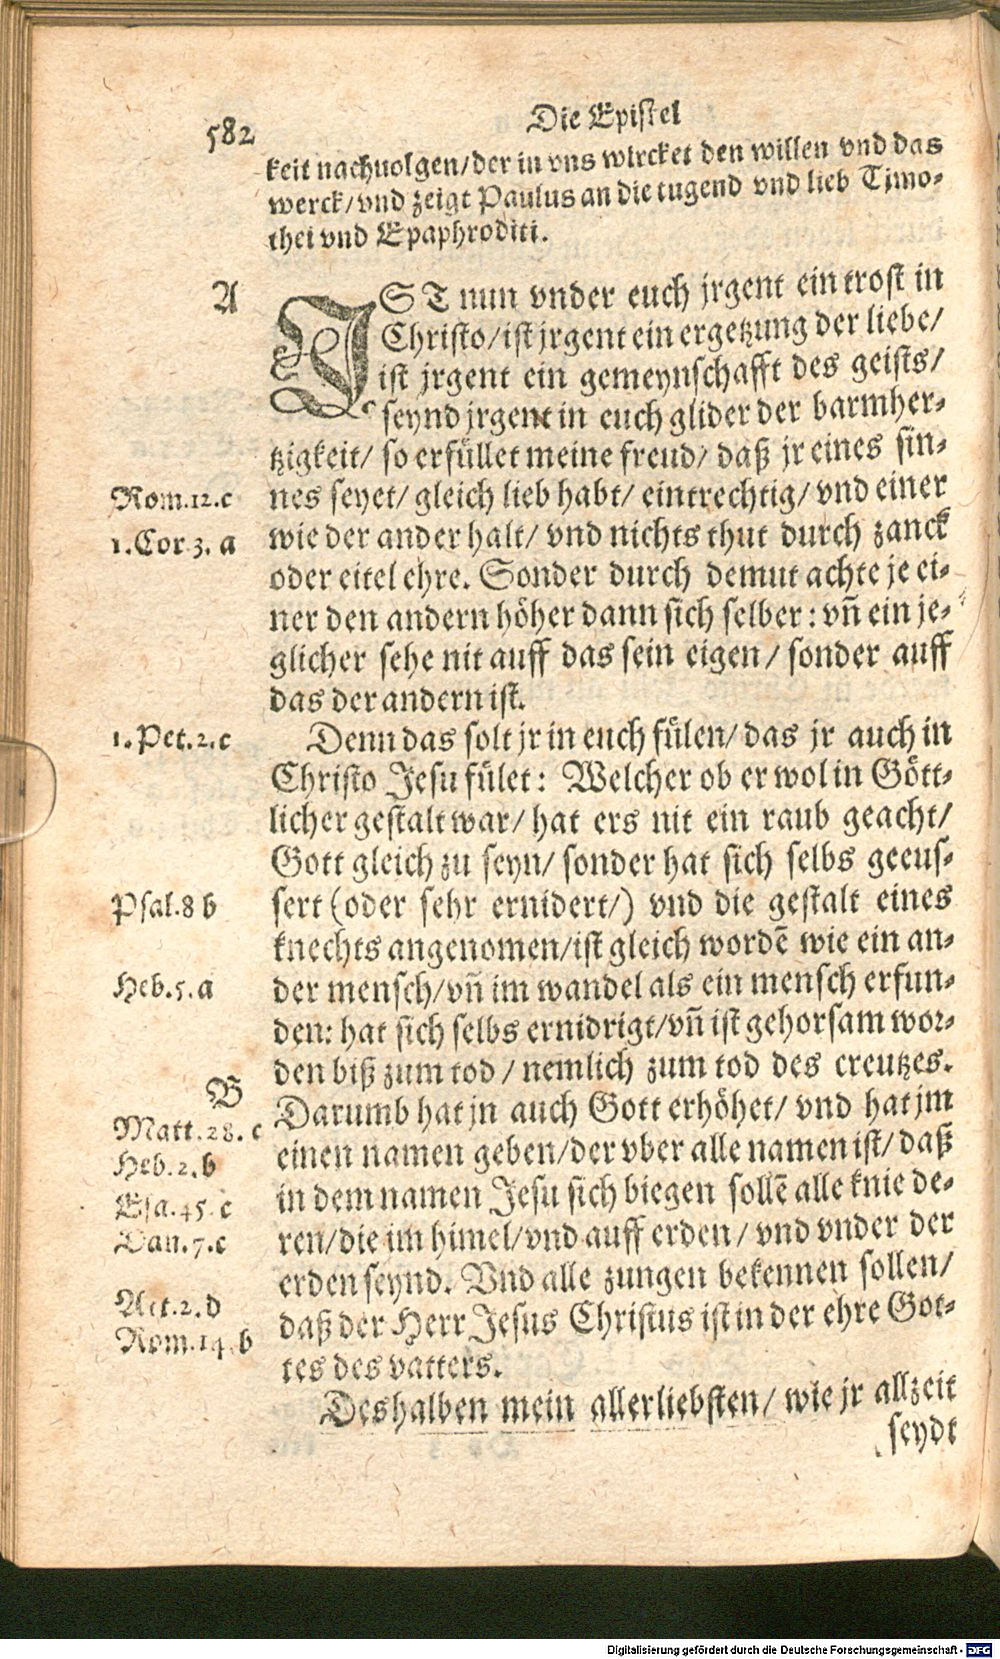 582
Die Epistel
keit nachuolgen/der in vns wircket den willen vnd das
werck/vnd zeigt Paulus an die tugend vnd lieb Timo-
thei vnd Epaphroditi.
A
IST nun vnder euch jrgent ein trost in
Christo/ist jrgent ein ergetzung der liebe/
ist jrgent ein gemeynschafft des geists/
seynd jrgent in euch glider der barmher-
tzigkeit/ so erfüllet meine freud/ daß jr eines sin-
Rom.12.c
nes seyet/ gleich lieb habt/ eintrechtig/ vnd einer
1.Cor 3. a
wie der ander halt/ vnd nichts thut durch zanck
oder eitel ehre. Sonder durch demut achte je ei-
ner den andern höher dann sich selber: vñ ein je-
glicher sehe nit auff das sein eigen/ sonder auff
das der andern ist.
1.Pet.2.c
Denn das solt jr in euch fülen/ das jr auch in
Christo Jesu fület: Welcher ob er wol in Gött-
licher gestalt war/ hat ers nit ein raub geacht/
Gott gleich zu seyn/ sonder hat sich selbs geeus-
Psal.8 b
sert (oder sehr ernidert/) vnd die gestalt eines
knechts angenomen/ist gleich wordẽ wie ein an-
Heb.5.a
der mensch/vñ im wandel als ein mensch erfun-
den: hat sich selbs ernidrigt/vñ ist gehorsam wor-
den biß zum tod/ nemlich zum tod des creutzes.
B
Darumb hat jn auch Gott erhöhet/ vnd hat jm
Matt.28.c
einen namen geben/der vber alle namen ist/ daß
Heb.2.b
in dem namen Jesu sich biegen sollẽ alle knie de-
Esa.45.c
ren/die im himel/vnd auff erden/ vnd vnder der
Dan.7.c
erden seynd. Vnd alle zungen bekennen sollen/
Act.2.d
daß der Herr Jesus Christus ist in der ehre Got-
Rom.14.b
tes des vatters.
Deshalben mein allerliebsten/ wie jr allzeit
seydt
Digitalisierung gefördert durch die Deutsche Forschungsgemeinschaft - DFG